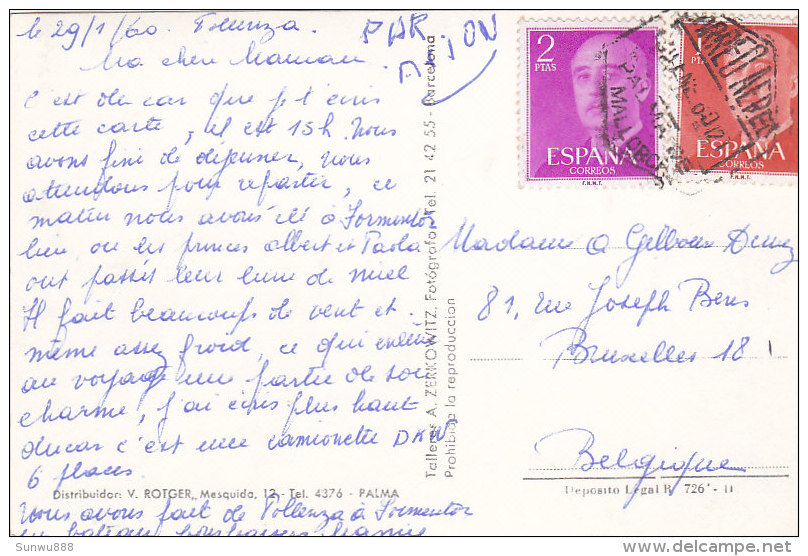 le 29/1/60. Pollenza.
PAR
AVION
Ma chère Maman.
C'est du car que j t'écris
cette carte, il est 15h. Nous
avons fini de déjeuner, nous
attendons pour repartir, ce
matin nous avons été à Formentor
lieu ou les princes Albert et Paola
ont passés leur lune de miel
Il fait beaucoup de vent et
même assez froid, ce qui enlève
au voyage une partie de son
charme, j'ai écris plus haut
du car c'est une camionette DKW
6 places.
Nous avons fait de Pollenza à Formentor
en bateau
Distribuidor: V. ROTGER, Mesquida, 12 - Tel. 4376 - PALMA
Talleres A. ZERKOWITZ. Fotógrafo - Tel. 21 42 55 - Barcelona
Prohibida la reproduccion
2
PTAS
ESPAÑA
CORREOS
F.N.M.T.
1
ESPAÑA
CORREOS
F.N.M.T.
CORREO AEREO
PALMA
MALLORCA
Madame A
81, rue Joseph Bens
Bruxelles 18
Belgique
Deposito Legal B. 726 - II
Sunwu888
delcampe.net